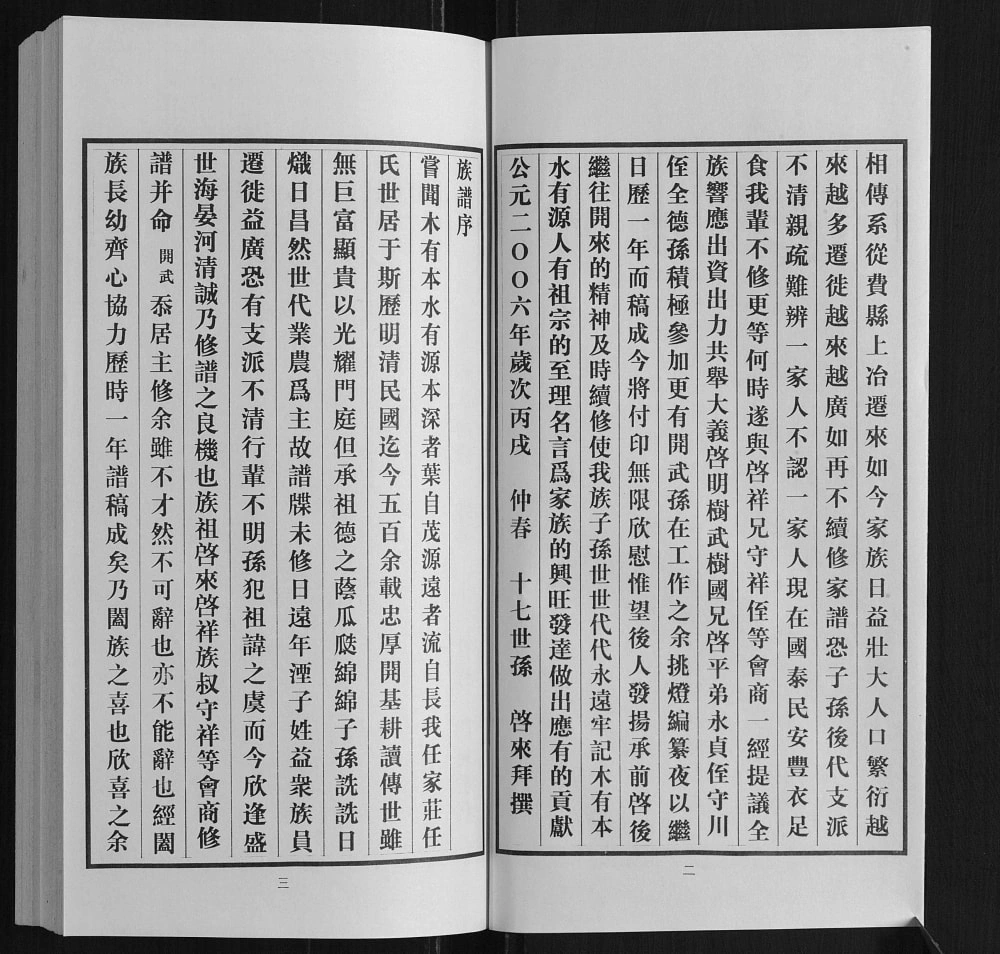 相傳系從費縣上冶遷來如今家族日益壯大人口繁衍越
來越多遷徙越來越廣如再不續修家譜恐子孫後代支派
不清親疏難辨一家人不認一家人現在國泰民安豐衣足
食我輩不修更等何時遂與啓祥兄守祥侄等會商一經提議全
族響應出資出力共舉大義啓明樹武樹國兄啓平弟永貞侄守川
侄全德孫積極參加更有開武孫在工作之余挑燈編纂夜以繼
日歷一年而稿成今將付印無限欣慰惟望後人發揚承前啓後
繼往開來的精神及時續修使我族子孫世世代代永遠牢記木有本
水有源人有祖宗的至理名言爲家族的興旺發達做出應有的貢獻
公元二〇〇六年歲次丙戌 仲春 十七世孫 啓來拜撰
二
族譜序
嘗聞木有本水有源本深者葉自茂源遠者流自長我任家莊任
氏世居于斯歷明清民國迄今五百余載忠厚開基耕讀傳世雖
無巨富顯貴以光耀門庭但承祖德之蔭瓜瓞綿綿子孫詵詵日
熾日昌然世代業農爲主故譜牒未修日遠年湮子姓益衆族員
遷徙益廣恐有支派不清行輩不明孫犯祖諱之虞而今欣逢盛
世海晏河清誠乃修譜之良機也族祖啓來啓祥族叔守祥等會商修
譜并命 開武 忝居主修余雖不才然不可辭也亦不能辭也經闔
族長幼齊心協力歷時一年譜稿成矣乃闔族之喜也欣喜之余
三